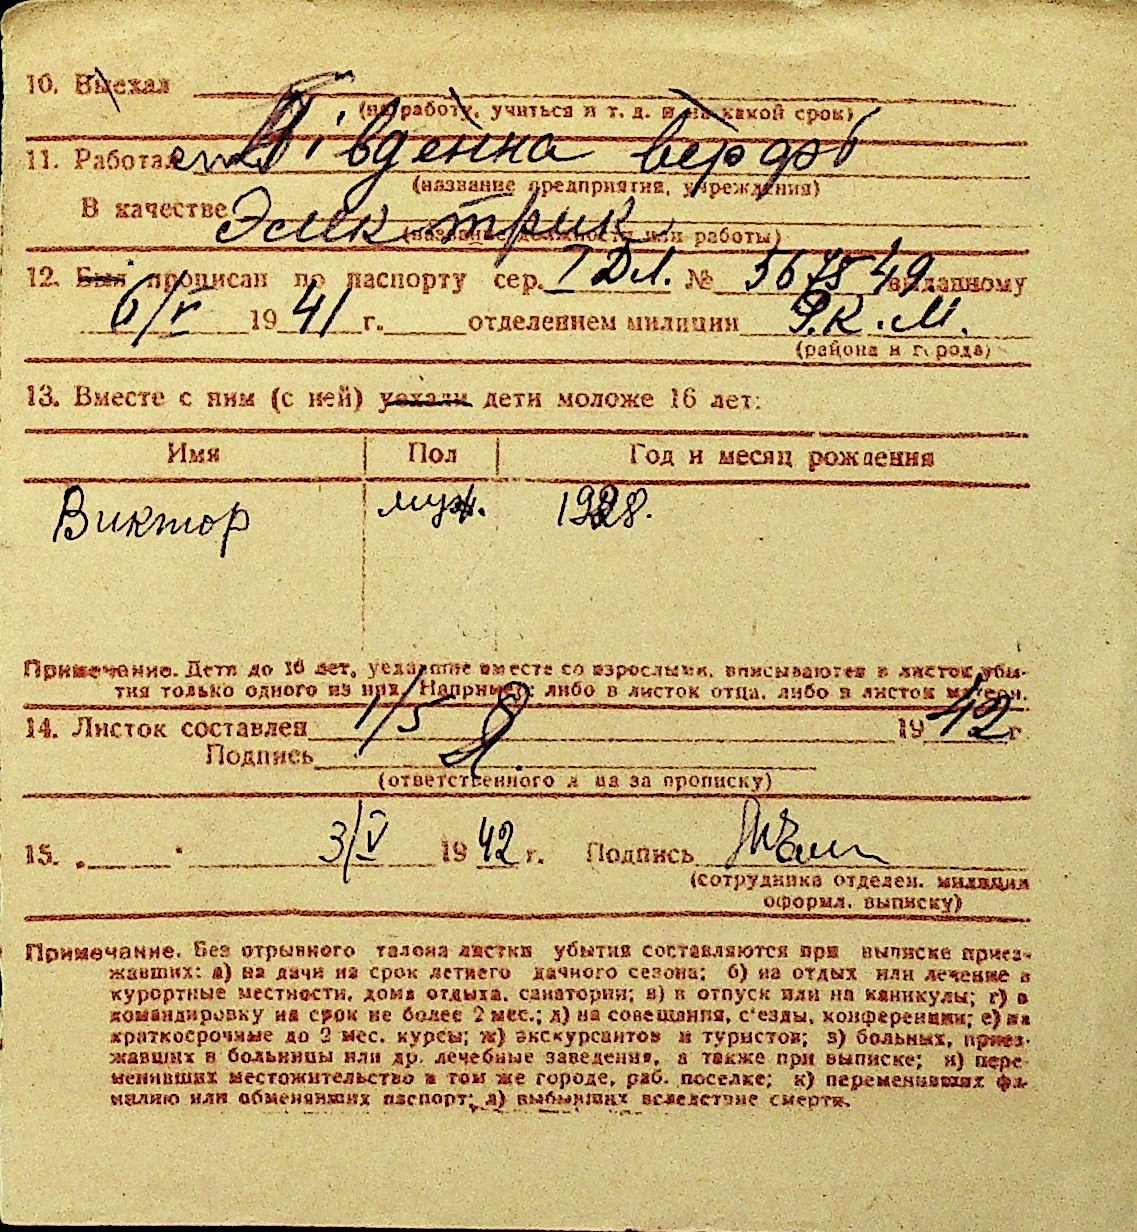 10. Выехал
(на работу, учиться и т. д. и на какой срок)
11. Работал Південна верфь
(название предприятия, учреждения)
В качестве Электрик
(название должности или работы)
12. Был прописан по паспорту сер. № 567549 выданному
6/V 1941 г. отделением милиции Р.К.М.
(района и города)
13. Вместе с ним (с ней) уехали дети моложе 16 лет:
Имя Пол Год и месяц рождения
Виктор муж. 1928.
Примечание. Дети до 16 лет, уехавшие вместе со взрослыми, вписываются в листок убы-
тия только одного из них. Например: либо в листок отца, либо в листок матери.
14. Листок составлен 1/5 1942 г
Подпись
(ответственного лица за прописку)
15. 3/V 1942 г. Подпись
(сотрудника отделен. милиции
оформл. выписку)
Примечание. Без отрывного талона листки убытия составляются при выписке приез-
жавших: а) на дачи на срок летнего дачного сезона; б) на отдых или лечение в
курортные местности, дома отдыха, санатории; в) в отпуск или на каникулы; г) в
командировку на срок не более 2 мес.; д) на совещания, с'езды, конференции; е) на
краткосрочные до 2 мес. курсы; ж) экскурсантов и туристов; з) больных, приез-
жавших в больницы или др. лечебные заведения, а также при выписке; и) пере-
менивших местожительство в том же городе, раб. поселке; к) переменивших фа-
милию или обменявших паспорт; л) выбывших вследствие смерти.